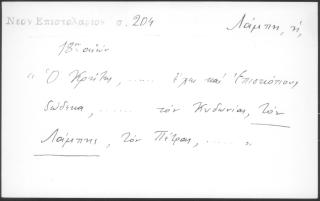 Νεον Επιστολαριον σ. 204
Λάμπη, ἡ,
18ης αἰών
" Ὁ Κρήτης, ...... ἔχει καὶ Ἐπισκόπους
δώδεκα, ....... τὸν Κυδωνίας, τὸν
Λάμπης, τὸν Πέτρας, ...... "